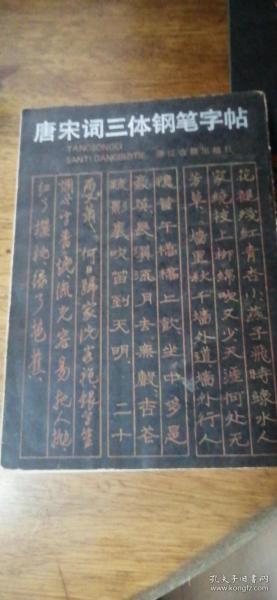 唐宋词三体钢笔字帖
TANGSONGCI
SANTI GANGBIZITIE 浙江古籍出版社
花褪残红青杏小燕子飞时绿水人
家绕枝上柳绵吹又少天涯何处无
芳草 墙里秋千墙外道墙外行人
忆昔午桥桥上饮坐中多是
豪英长沟流月去无声杏花
疏影里吹笛到天明 二十
何日归家洗客袍银字笙
调心字香烧流光容易把人抛
红了樱桃绿了芭蕉
孔夫子旧书网